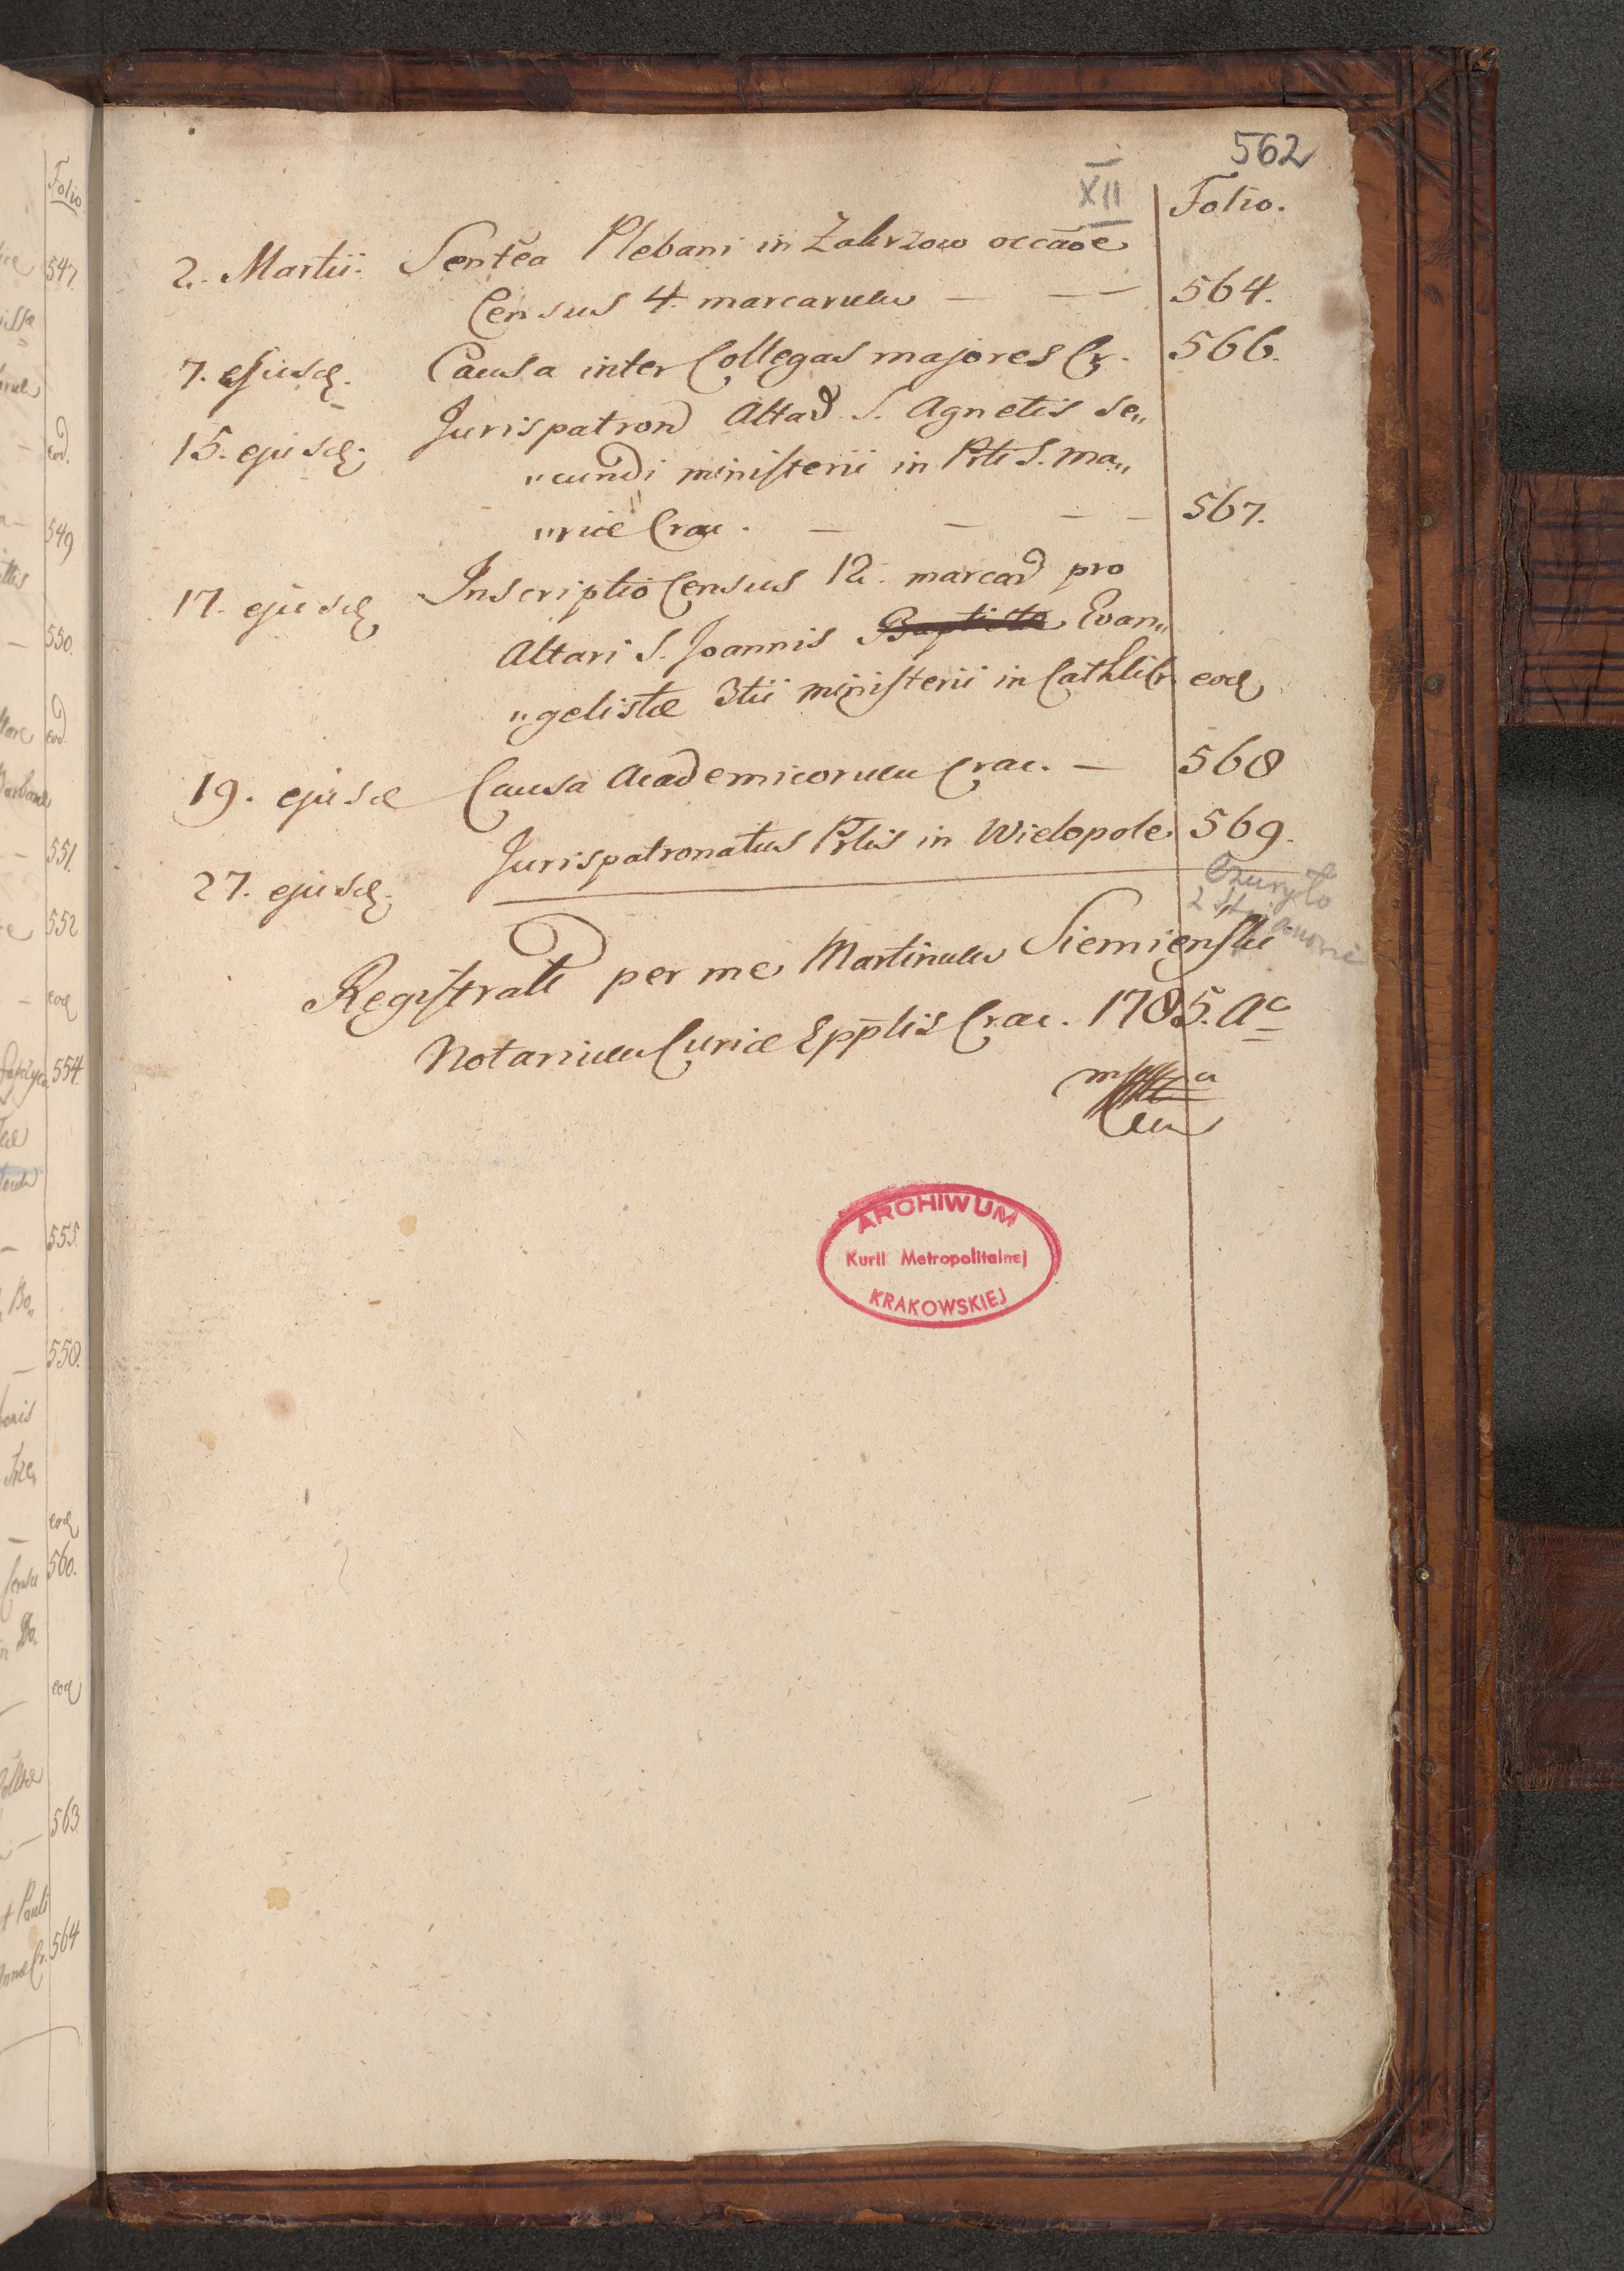 562
XII
Folio.
2. Martii. Sentēa Plebani in Zakrzow occāoe
Census 4. marcarum — — — 564.
7. ejusd. Causa inter Collegas majores Cr. 566.
15. ejusd. Jurispatron Altar S. Agnetis se„
„cundi ministerii in Prli S. Ma„
„riæ Crac. — — — — 567.
17. ejusd. Inscriptio Census 12. marcar pro
Altari S. Joannis Baptistæ Evan„
„gelistæ 3tii ministerii in Cathli Cr. eod
19. ejusd Causa Academicorum Crac. — 568
27. ejusd. Jurispatronatus Prlis in Wielopole 569.
Registrati per me Martinum Siemieński
Notarium Curiæ Epp̄lis Crac. 1785. Aº
ARCHIWUM
Kurii Metropolitalnej
KRAKOWSKIEJ
Folio
547.
eod.
549
550.
eod.
551.
552
eod
554.
555.
558.
eod
560.
eod
563.
564